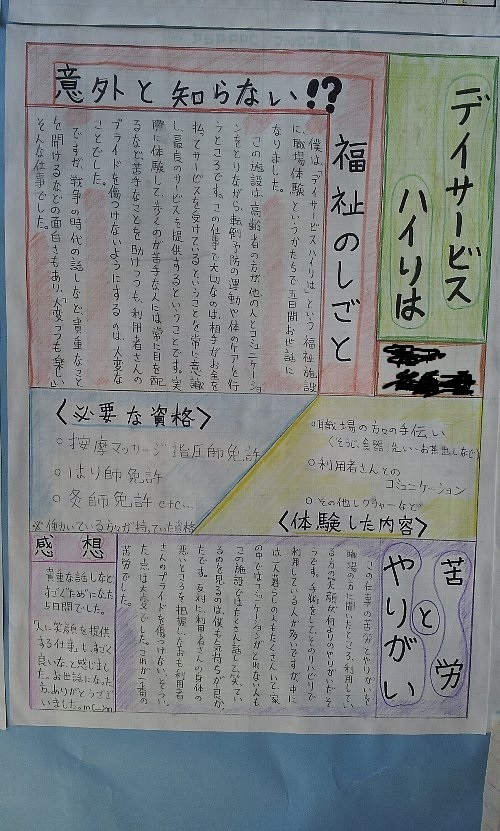 デイサービス
ハイリは
意外と知らない!?
福祉のしごと
僕は、「デイサービスハイリは」という福祉施設
に職場体験というかたちで五日間お世話に
なりました。
この施設は、高齢者の方が他の人とコミュニケーショ
ンをとりながら、転倒予防の運動や体のケアを行
うところです。この仕事で大切なのは、相手がお金を
払ってサービスを受けているということを常に意識
し、最良のサービスを提供するということです。実
際に体験して、歩くのが苦手な人には常に目を配
るなど苦手なことを助けつつも、利用者さんの
プライドを傷つけないようにするのは、大変な
ことでした。
ですが、戦争の時代の話しなど、貴重なこと
を聞けるなどの面白みもあり、「大変つつも楽しい」
そんな仕事でした。
〈必要な資格〉
○按摩マッサージ指圧師免許
○はり師免許
○灸師免許etc...
※働いている方々が持っていた資格
○職場の方々の手伝い
(そうじ、食器洗い、お茶出しなど)
○利用者さんとの
コミュニケーション
○その他レクチャーなど
〈体験した内容〉
苦労
と
やりがい
この仕事の苦労とやりがいを
職場の方に聞いたところ、利用して
る方の笑顔が何よりのやりがいだそ
うです。手術をしてそのリハビリで
利用している人が多いですが、中に
は一人暮らしの人もたくさんいて、家
の中ではコミュニケーションがとれない人も
この施設ではたくさん話して笑ってい
るのを見るのは、僕も気持ちが良か
ったです。反対に、利用者さんの身体の
悪いところを把握しなおも利用者
さんのプライドを傷つけない、そうい
た点は大変でした。これが一番の
苦労でした。
感想
貴重な話しなど
すごくためになた
5日間でした。
「人に笑顔を提供
する仕事」、すごく
良いな、と感じまし
た。お世話になた
方、ありがとうござ
いました。m(__)m